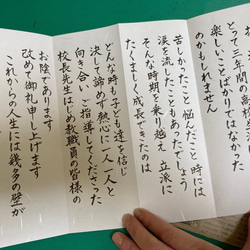 とって三年間の
楽しいことばかりではなかった
のかもしれません
苦しかったこと 悩んだこと 時には
涙を流したこともあったでしょう
そんな時期を乗り越え 立派に
たくましく成長できたのは
どんな時も子ども達を信じ
決して諦めず 熱心に一人一人と
向き合い ご指導してくださった
校長先生はじめ教職員の皆様の
お陰であります
改めて御礼申し上げます
これからの人生には幾多の壁が